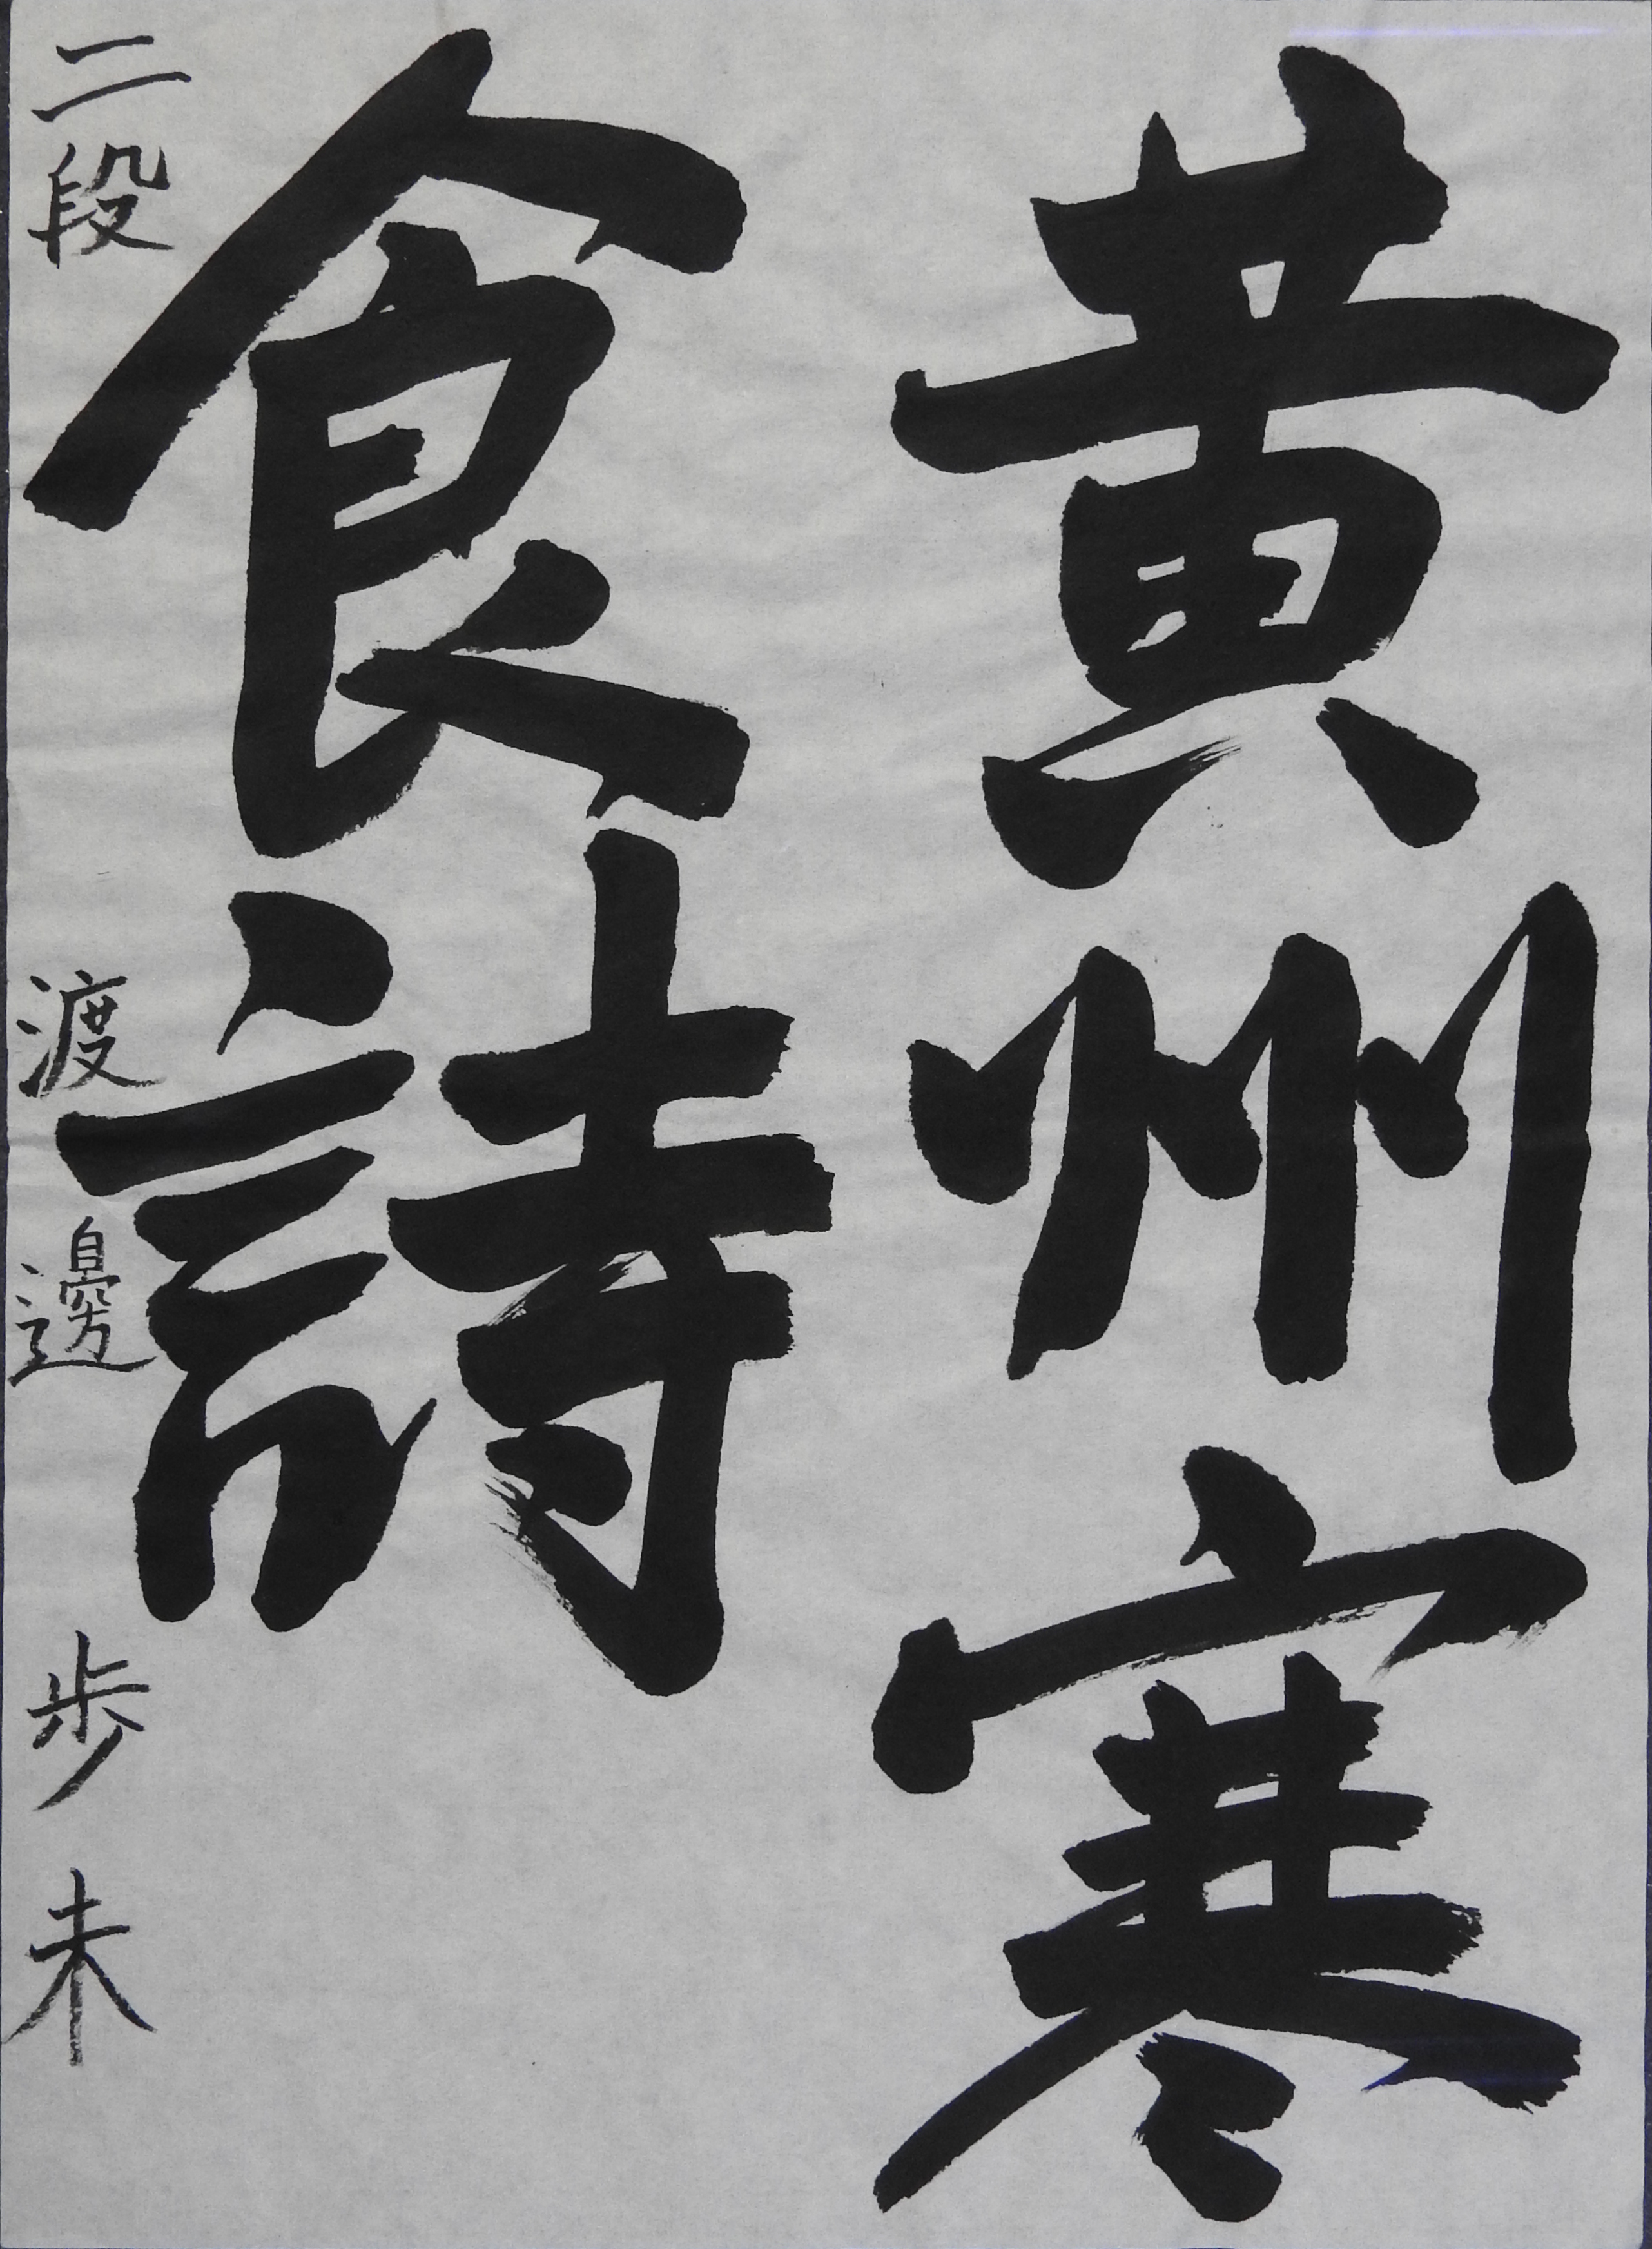 黄州寒
食詩
二段 渡邊歩未